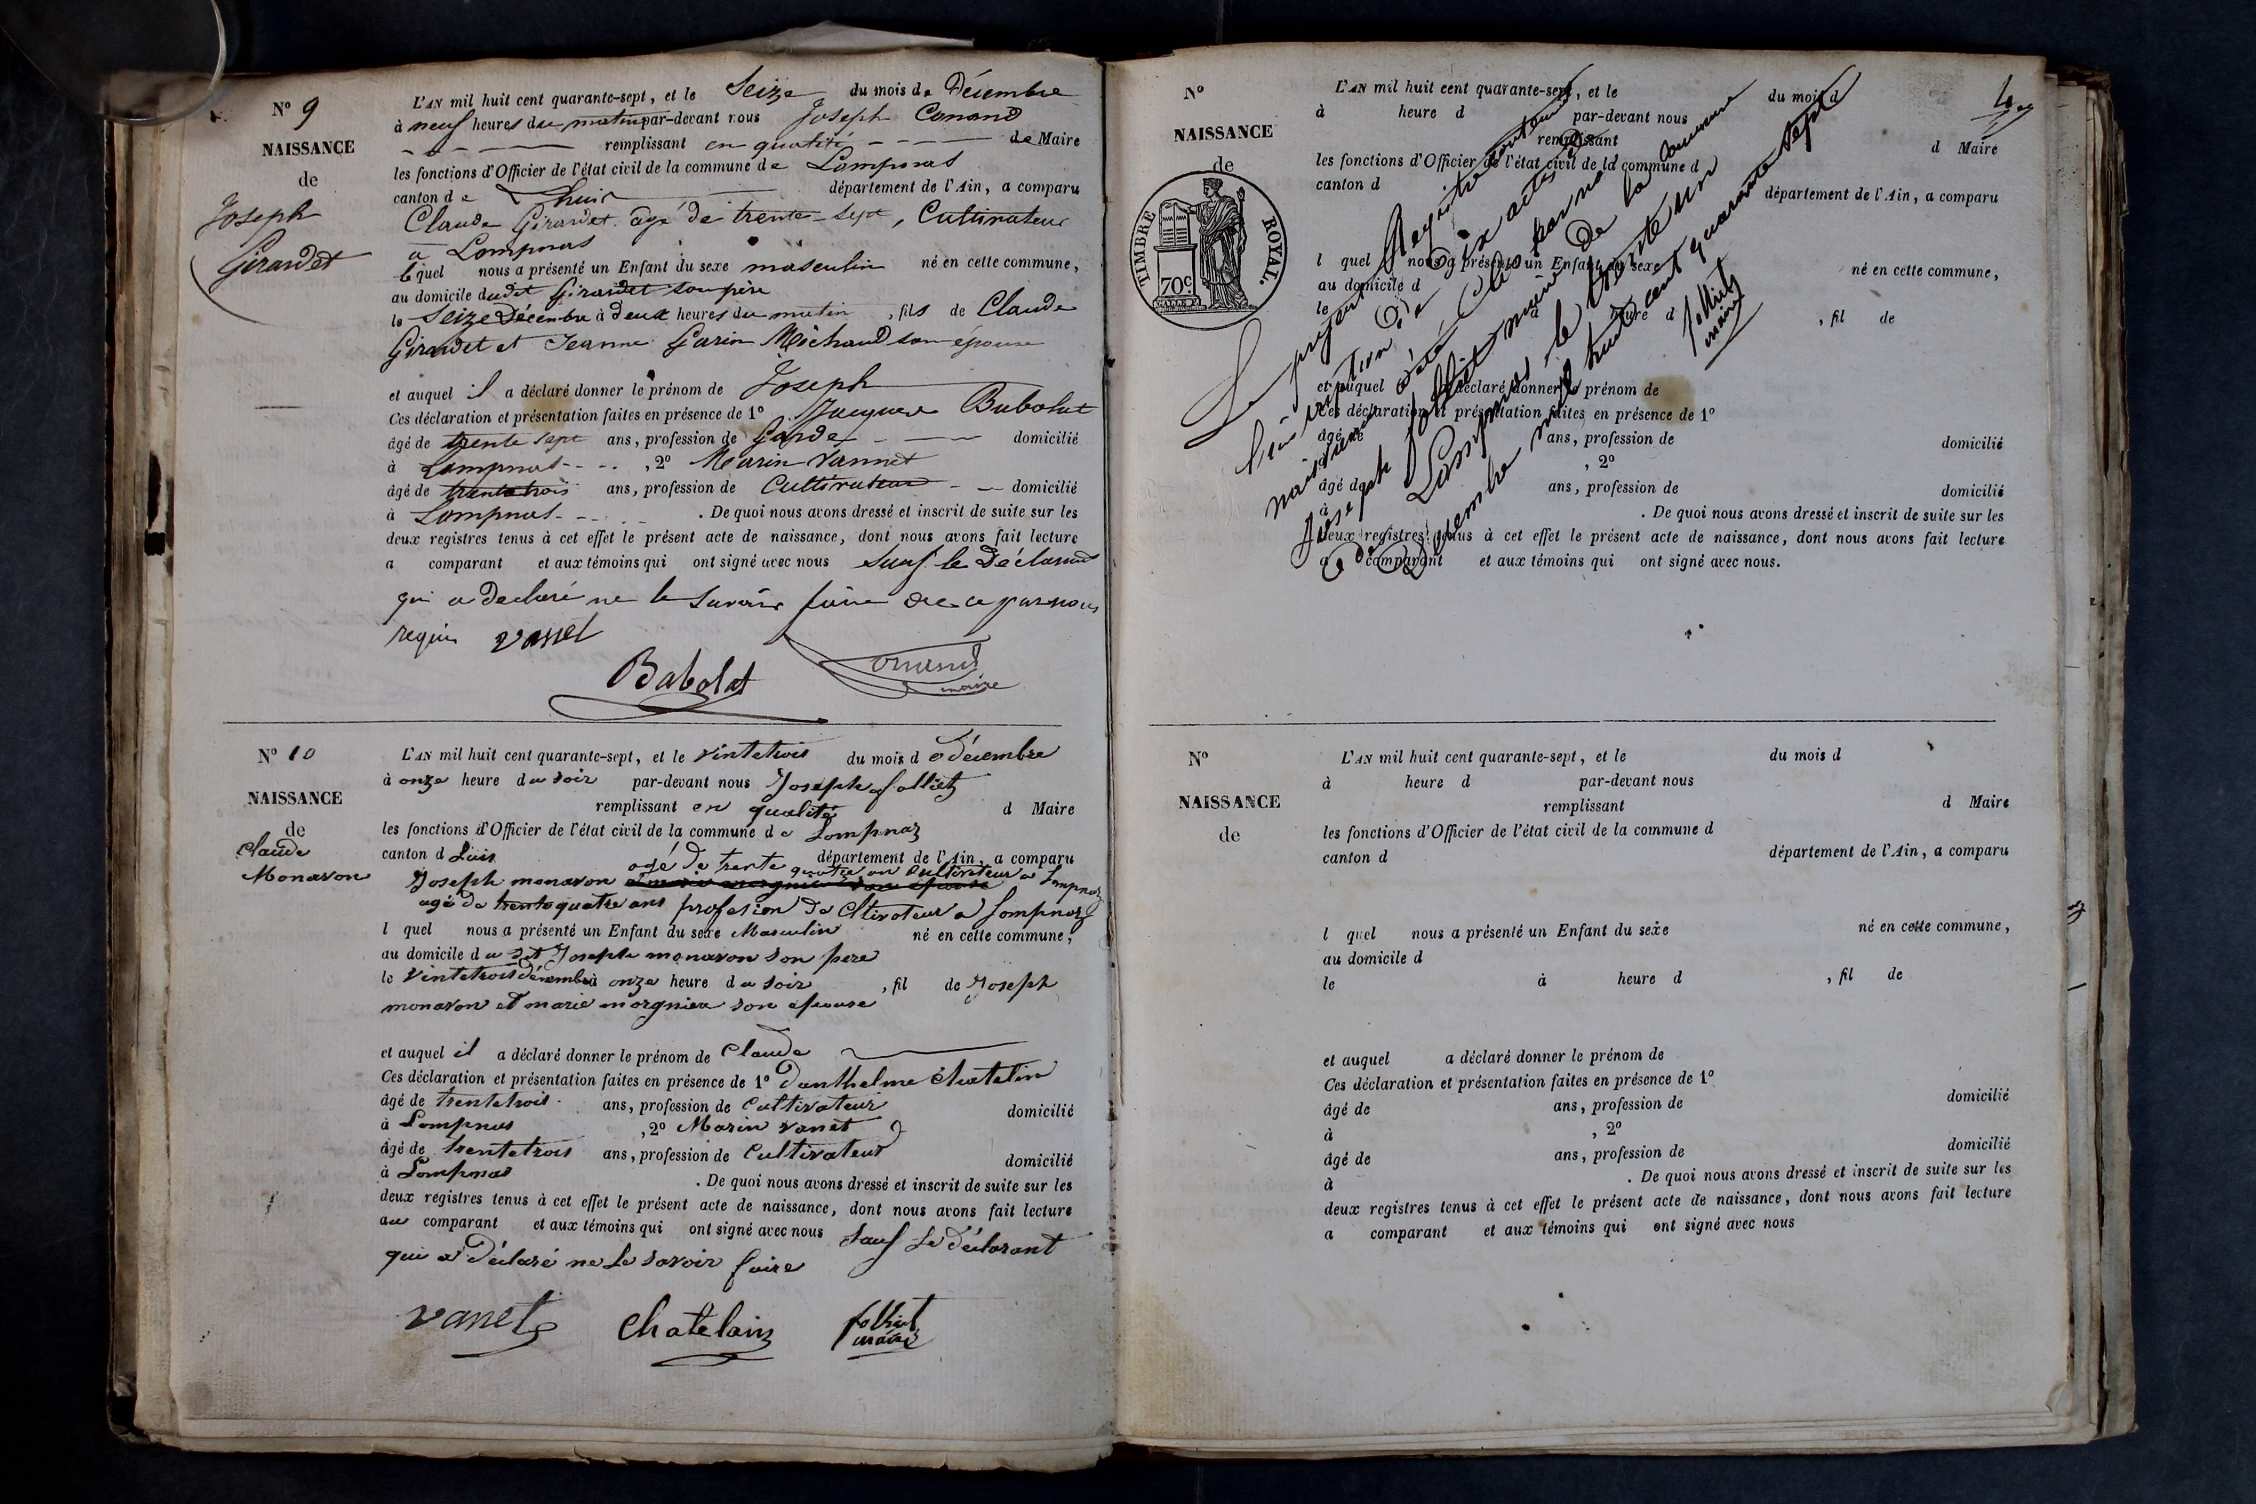 N° 9
NAISSANCE
de
Joseph
Girardet
L'AN mil huit cent quarante-sept, et le Seize du mois de Décembre
à neuf heures du matin par-devant nous Joseph Conand
remplissant en qualité de Maire
les fonctions d'Officier de l'état civil de la commune de Lompnas
canton de Lhuis département de l'Ain, a comparu
Claude Girardet agé de trente-sept, Cultivateur
a Lompnas
lequel nous a présenté un Enfant du sexe masculin né en cette commune,
au domicile dudit Girardet son père
le Seize Décembre à deux heures du matin, fils de Claude
Girardet et Jeanne Garin Michaud son épouse
et auquel il a déclaré donner le prénom de Joseph
Ces déclaration et présentation faites en présence de 1° Jacques Babolat
âgé de trente sept ans, profession de Garde domicilié
à Lompnas, 2° Marin Vannet
âgé de trente trois ans, profession de Cultivateur domicilié
à Lompnas. De quoi nous avons dressé et inscrit de suite sur les
deux registres tenus à cet effet le présent acte de naissance, dont nous avons fait lecture
a comparant et aux témoins qui ont signé avec nous Sauf le Déclarant
qui a declaré ne le Savoir faire de ce par nous
requis vanet
Babolat
Conand
maire
N° 10
NAISSANCE
de
Claude
Monavon
L'AN mil huit cent quarante-sept, et le vintetrois du mois d e décembre
à onze heure du soir par-devant nous Joseph folliet
remplissant en qualité d Maire
les fonctions d'Officier de l'état civil de la commune de Lompnaz
canton d Luis département de l'Ain, a comparu
agé de trente quatre an Cultivateur a Lompnaz
Joseph monavon et marie morgnieu son épouse
agé de trente quatre ans profesion de Cltivateur a Lompnaz
l quel nous a présenté un Enfant du sexe Masculin né en cette commune,
au domicile du dit Joseph monavon son pere
le vintetrois décembre à onze heure du soir, fil de Joseph
monavon et marie morgnieu son épouse
et auquel il a déclaré donner le prénom de Claude
Ces déclaration et présentation faites en présence de 1° Danthelme Chatelin
âgé de trentetrois ans, profession de Cultivateur domicilié
à Lompnas, 2° Marin vanet
âgé de trentetrois ans, profession de Cultivateur domicilié
à Lompnas. De quoi nous avons dressé et inscrit de suite sur les
deux registres tenus à cet effet le présent acte de naissance, dont nous avons fait lecture
au comparant et aux témoins qui ont signé avec nous Sauf le déclarant
qui a déclaré ne le savoir faire
vanet Chatelain folliet
maire
N°
NAISSANCE
de
TIMBRE ROYAL.
70c
L'AN mil huit cent quarante-sept, et le du mois d
à heure d par-devant nous
remplissant d Maire
les fonctions d'Officier de l'état civil de la commune d
canton d département de l'Ain, a comparu
l quel nous a présenté un Enfant du sexe né en cette commune,
au domicile d
le à heure d, fil de
et auquel a déclaré donner le prénom de
Ces déclaration et présentation faites en présence de 1°
âgé de ans, profession de domicilié
à, 2°
âgé de ans, profession de domicilié
à. De quoi nous avons dressé et inscrit de suite sur les
deux registres tenus à cet effet le présent acte de naissance, dont nous avons fait lecture
a comparant et aux témoins qui ont signé avec nous.
Le présent Registre contenant
l'inscription de dix actes de
naissance a été Clos par nous
Joseph folliet maire de la commune
de Lompnas le trente un
Décembre mil huit cent quarante sept
folliet
maire
N°
NAISSANCE
de
L'AN mil huit cent quarante-sept, et le du mois d
à heure d par-devant nous
remplissant d Maire
les fonctions d'Officier de l'état civil de la commune d
canton d département de l'Ain, a comparu
l quel nous a présenté un Enfant du sexe né en cette commune,
au domicile d
le à heure d, fil de
et auquel a déclaré donner le prénom de
Ces déclaration et présentation faites en présence de 1°
âgé de ans, profession de domicilié
à, 2°
âgé de ans, profession de domicilié
à. De quoi nous avons dressé et inscrit de suite sur les
deux registres tenus à cet effet le présent acte de naissance, dont nous avons fait lecture
a comparant et aux témoins qui ont signé avec nous